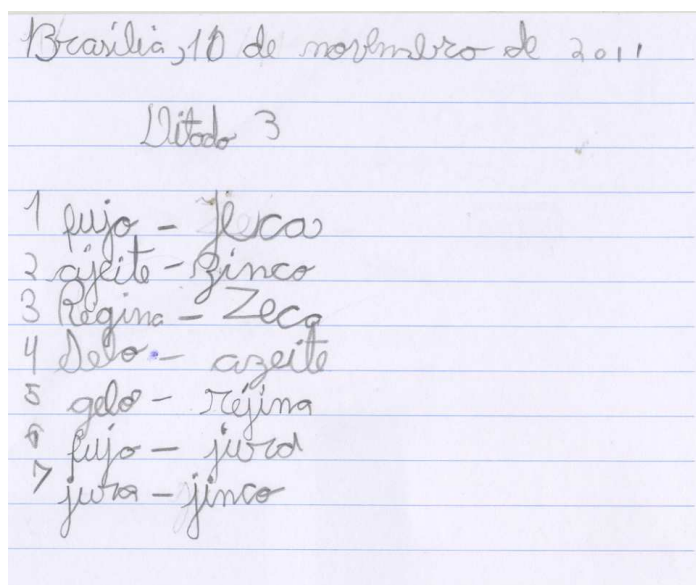 Brasília, 10 de novembro de 2011
Ditado 3
1 fujo - Jeca
2 ajeite - zinco
3 Regina - Zeca
4 Selo - azeite
5 gelo - réjina
6 fujo - jura
7 jura - jinco